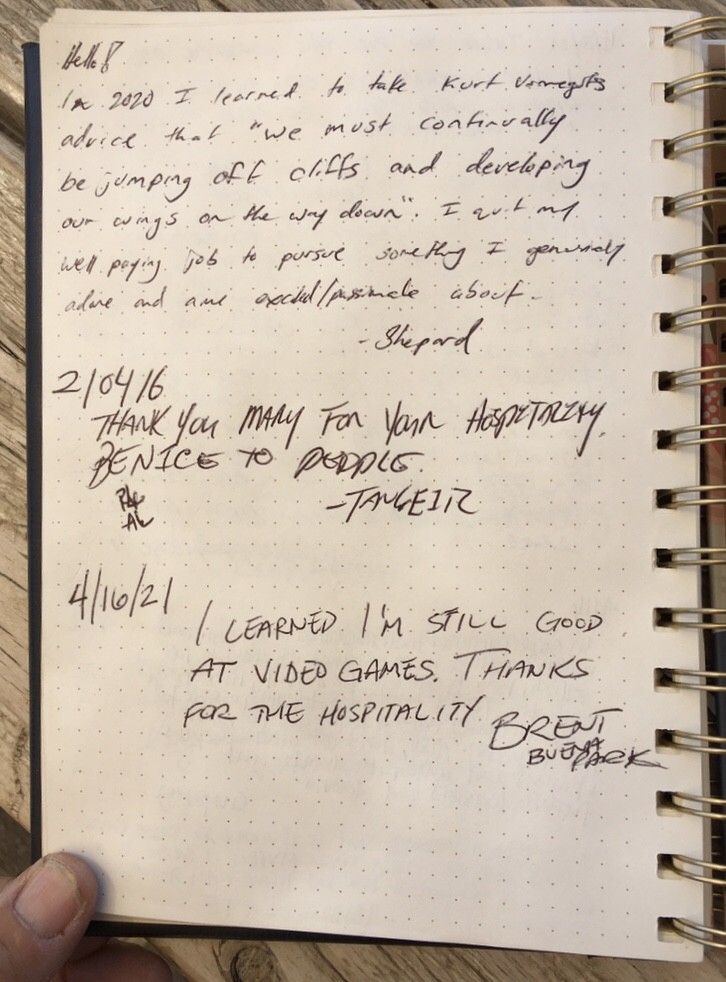 Hello!
In 2020 I learned to take Kurt Vonneguts
advice that "we must continually
be jumping off cliffs and developing
our wings on the way down". I quit my
well paying job to pursue something I genuinely
adore and am excited/passionate about.
-Shepard
2/04/6
THANK YOU MARY FOR YOUR HOSPITALITY.
BE NICE TO PEOPLE.
-TANGEIR
4/16/21
I LEARNED I'M STILL GOOD
AT VIDEO GAMES. THANKS
FOR THE HOSPITALITY
BRENT
BUENA
PARK